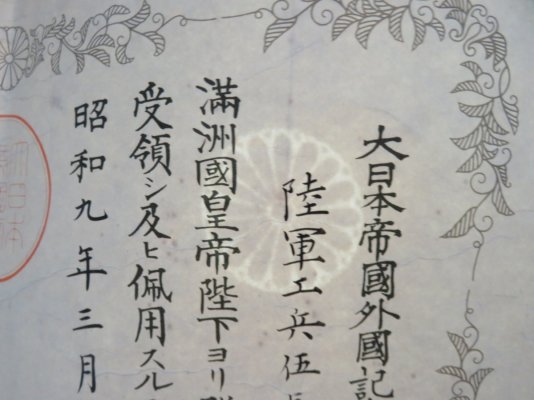 大日本帝國外國記
陸軍工兵伍
滿洲國皇帝陛下ヨリ
受領シ及ヒ佩用スル
昭和九年三月